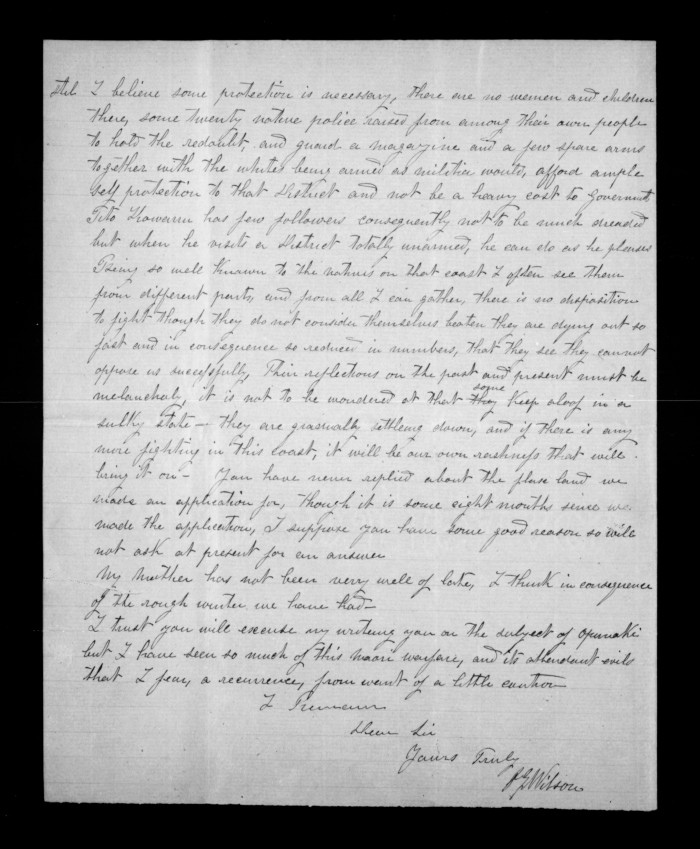 Still I believe some protection is necessary, there are no women and children
there, some twenty native police raised from among their own people
to hold the redoubt, and guard a magazine and a few spare arms
together with the whites being armed as militia would, afford ample
self protection to that District and not be a heavy cost to Government
Tito Howarru has few followers consequently not to be much dreaded
but when he visits a District totally unarmed, he can do as he pleases
Being so well known to the natives on that coast I often see them
from different parts, and from all I can gather, there is no disposition
to fight though they do not consider themselves beaten they are dying out so
fast and in consequence so reduced in numbers, that they see they cannot
oppose us successfully, Their reflections on the past and present must be
melancholy, it is not to be wondered at that they some keep aloof in a
sulky state - they are gradually settling down, and if there is any
more fighting in this Coast, it will be our own rashness that will
bring it on - You have never replied about the land we
made an application for, though it is some eight months since we
made the application, I suppose you have some good reason so will
not ask at present for an answer
My Mother has not been very well of late, I think in consequence
of the rough winter we have had -
I trust you will excuse my writing you on the subject of Opunaki
but I have seen so much of this maori warfare, and its attendant evils
that I fear, a recurrence, from want of a little caution
I Remain
Dear Sir
Yours Truly
Wilson